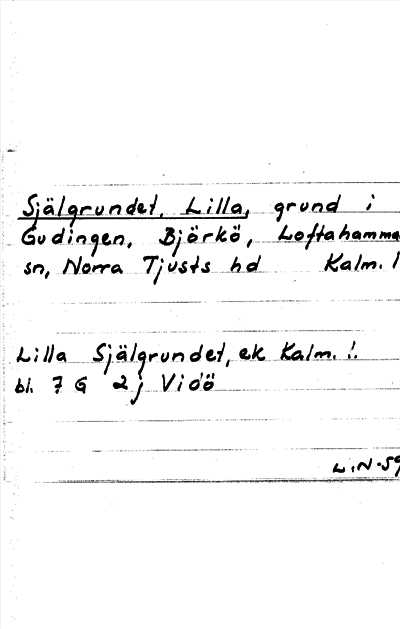 Själgrundet, Lilla, grund i
Gudingen, Björkö, Loftahamma
sn, Norra Tjusts hd Kalm. l
Lilla Själgrundet, ek Kalm. l.
bl. 7 G 2 j Vidö
L.N-59